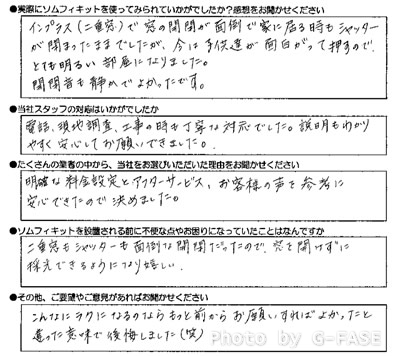 ●実際にソムフィキットを使ってみられていかがでしたか？感想をお聞かせください
インプラス(二重窓)で窓の開閉が面倒で家に居る時もシャッター
が閉まったままでしたが、今は子供達が面白がって押すので、
とても明るい部屋になりました。
開閉音も静かでよかったです。
●当社スタッフの対応はいかがでしたか
電話、現地調査、工事の時も丁寧な対応でした。説明もわかり
やすく安心してお願いできました。
●たくさんの業者の中から、当社をお選びいただいた理由をお聞かせください
明確な料金設定とアフターサービス、お客様の声を参考に
安心できたので決めました。
●ソムフィキットを設置される前に不便な点やお困りになっていたことはなんですか
二重窓もシャッターも面倒な開閉だったので、窓を開けずに
採光できるようになり嬉しい。
●その他、ご要望やご意見があればお聞かせください
こんなにラクになるのならもっと前からお願いすればよかったと
違った意味で後悔しました(笑)
Photo by G-FASE